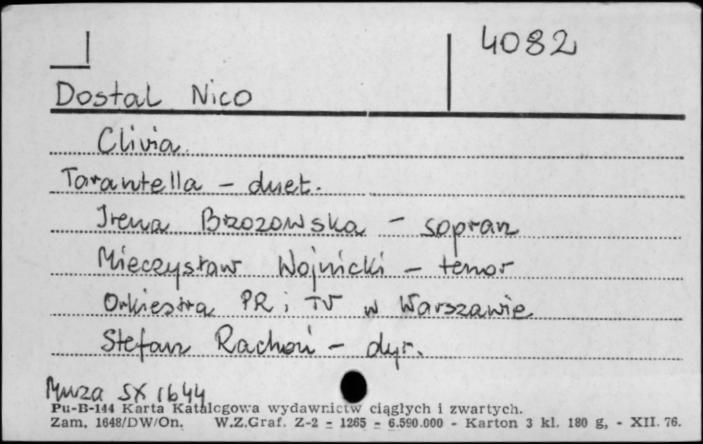 4082
Dostal Nico
Clivia
Tarantella – duet.
Irena Brzozowska – sopran
Mieczysław Wojnicki – tenor
Orkiestra PR i TV w Warszawie
Stefan Rachoń – dyr.
Muza SX 1644
Pu-B-144 Karta Katalogowa wydawnictw ciągłych i zwartych.
Zam. 1648/DW/On. W.Z.Graf. Z-2 = 1265 = 6.590.000 - Karton 3 kl. 180 g, - XII. 76.